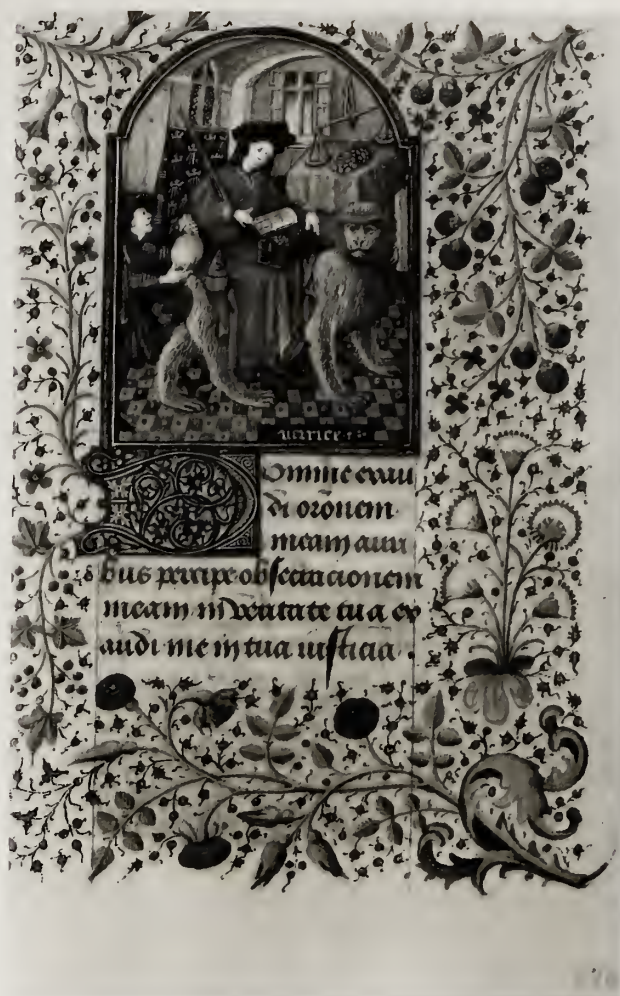 auarice
Domine exau
di or̄onem
meam auri
bus percipe obsecracionem
meam in veritate tua ex
audi me in tua iusticia.